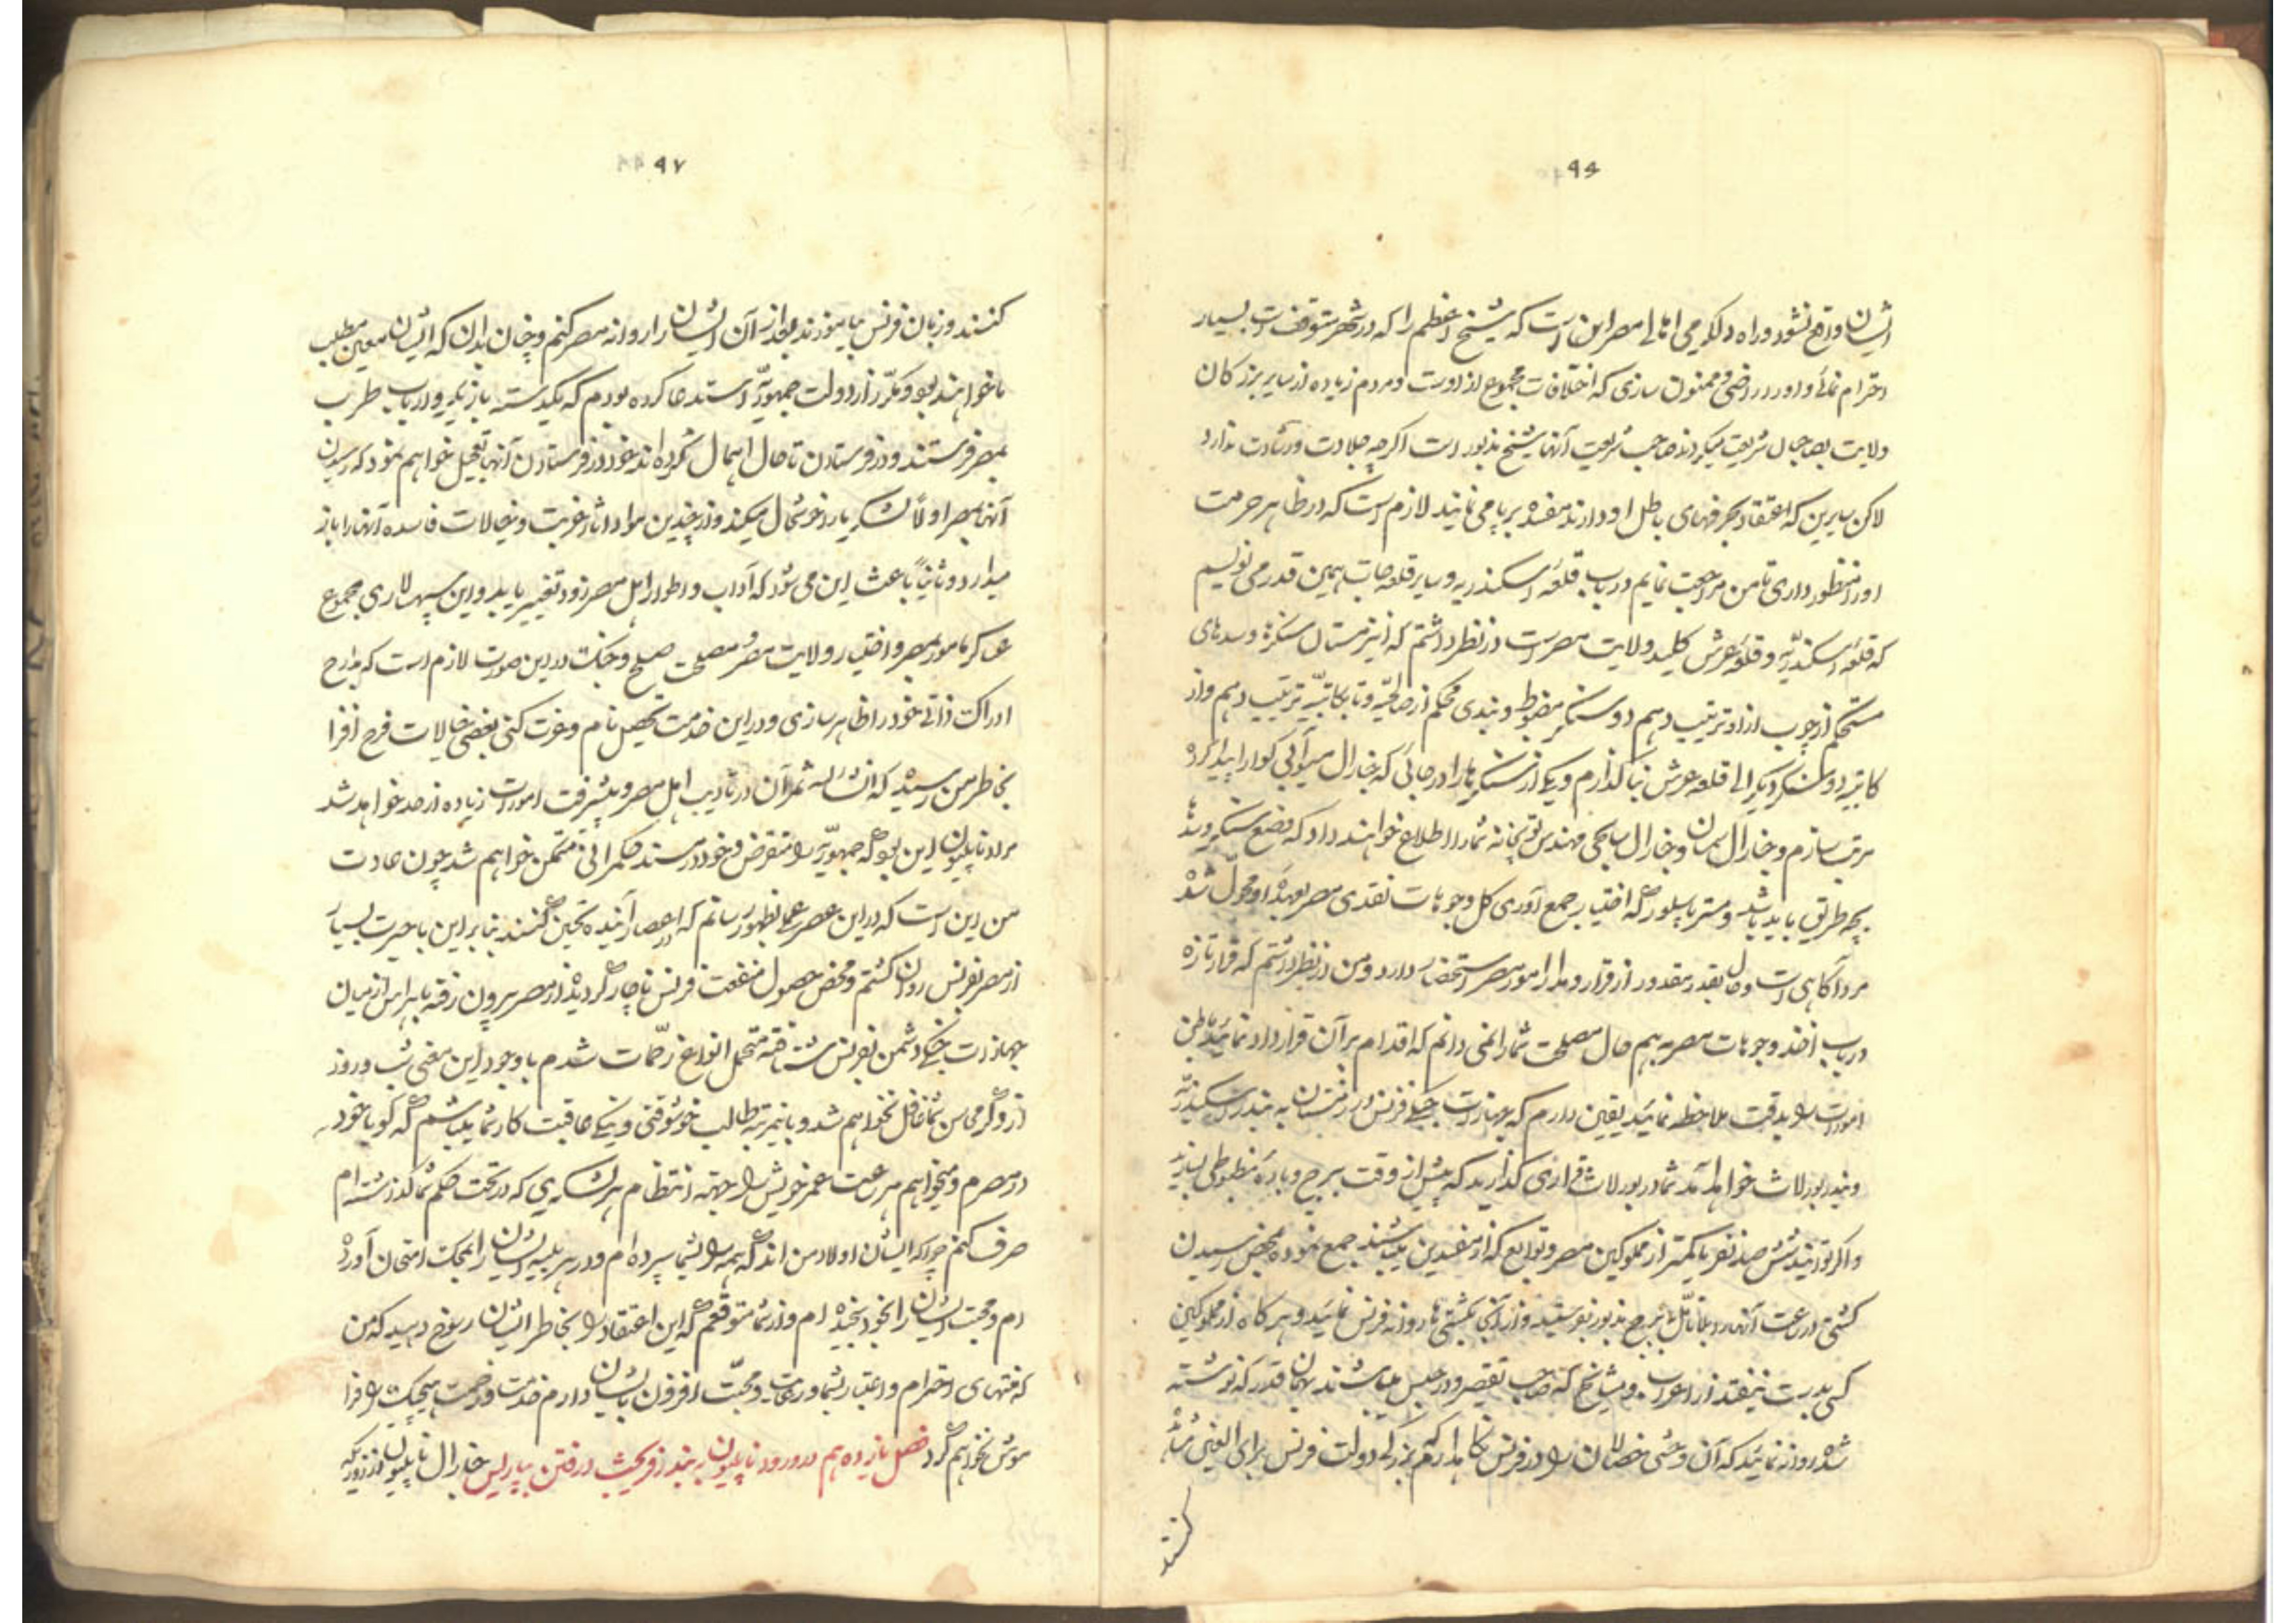 ۹۶
ایشان واقع نشود و راه دلگرمی اهالی مصر این است که شیخ اعظم را که در شهر متوقف است بسیار
احترام نمائی و او را راضی و ممنون سازی که اختلافات مجموع از اوست و مردم زیاده از سایر بزرکان
ولایت بصاحبان شریعت میکروند صاحب شریعت آنها شیخ مذبور است اکرچه جلادت و رشادت ندارد
لاکن سایرین که اعتقاد بحرفهای باطل او دارند مفسده برپا می نمایند لازم است که در ظاهر حرمت
او را منظور داری تا من مراجعت نمایم در باب قلعه اسکندریه و سایر قلعه جات همین قدر می نویسم
که قلعه اسکندریه و قلعه عرش کلید ولایت مصر است در نظر داشتم که این زمستان سنکرها و سدهای
مستحکم از چوب ازاد ترتیب دهم دو سنکر مضبوط و بندی محکم از صالحیّه و تا بکاتیّه ترتیب دهم و از
کاتیّه دو سنکر دیکر الی قلعه عرش بنا کذارم و یکی از سنکرها را در جائی که جنارال میوآبی کوارا پیدا کرده
مرتب سازم و جنارال سمان و جنارال مهندس توپخانه شما را اطلاع خواهند داد که وضع سنکر و سدها
بچه طریق باید باشد و مستر پاسلور که اختیار جمع آوری کل وجوهات نقدی مصر بعهده او محول شده
مرد آکاهی است و حال بقدر مقدور از قرار و مدار امور مصر استحضار دارد و من در نظر داشتم که قرار تازه
در باب اخذ وجوهات مصر بدهم حال مصلحت شما را نمی دانم که اقدام بر آن قرارداد نمائید باطن
امورات را بدقت ملاحظه نمائید یقین دارم که جهازات جنکی فرنس در زمستان به بندر اسکندریّه
و بندر بورلات خواهد آمد شما در بورلات قراری کذارید که پیش از وقت برج و باره مظبوطی بسازند
و اکر توانید شش صد نفر یا کمتر از مملوکین مصر و توابع که از مفسدین میباشند جمع نموده بمحض رسیدن
کشتی در ساعت آنها را بلاتامّل ببرج مذبور بفرستید و از آنجا بکشتی ها روانه فرنس نمائید و هر کاه از مملوکین
کسی بدست نیفتد از اعراب و مشایخ که صاحب تقصیر و در حبس میباشند بهمان قدر که نوشته
شده روانه نمائید که آن وحشی خصالان را در فرنس نکاهدارم که بزرکی دولت فرنس برای العین مشاهده
کنند
۹۷
کنند و زبان فرنس بیاموزند بعد از آن ایشان را روانه مصر کنم و چنان بدان که ایشان معین مطلب
ما خواهند بود و مکرّر از دولت جمهوریّه استدعا کرده بودم که یکدسته بازیکر و ارباب طرب
بمصر فرستند و در فرستادن تا حال اهمال کرده اند خود در فرستادن آنها تعجیل خواهم نمود که رسیدن
آنها بمصر اولاً لشکریان را خوشحال میکند و از چندین مواد اثار غربت و خیالات فاسده آنها را باز
میدارد و ثانیاً باعث این می شود که آداب و اطوار اهل مصر زود تغییر یابد و این سپهسالاری مجموع
عساکر مامور بمصر و اختیار ولایت مصر و مصلحت صلح و جنک در این صورت لازم است که مدارج
ادراکت ذاتی خود را ظاهر سازی و در این خدمت تحصیل نام و عزت کنی بعضی خیالات فرح افزا
بخاطر من رسیده که انشاء الله ثمر آن در تادیب اهل مصر و پیشرفت امورات زیاده از حد خواهد شد
مراد ناپلیون این بود که جمهوریّه را منقرض و خود در مسند حکمرانی متمکن خواهم شد چون عادت
من این است که در این عصر عملی بظهور رسانم که در اعصار آینده تحسین کنند بنابراین با حسرت بسیار
از مصر بفرنس روان کشتم و محض حصول منفعت فرنس ناچار کردیده از مصر بیرون رفته بهراس از میان
جهازات جنکی دشمن بفرنس شتافته متحمل انواع زحمات شدم با وجود این معنی شب و روز
از دلکرمی من شما غافل نخواهم شد و باینمرتبه طالب خوشوقتی و نیکی عاقبت کار شما میباشم که کویا خود
در مصرم و میخواهم هر ساعت عمر خویش را جهته انتظام هر لشکری که در تحت حکم شما کذاشته ام
صرف کنم چرا که ایشان اولاد من اند که همه را بشما سپرده ام و در هر بلیه ایشان را بمحک امتحان آورده
ام و محبت ایشان را بخود سنجیده ام و از شما متوقعم که این اعتقاد را بخاطر ایشان رسوخ دهید که من
که منتهای احترام و اعتبار بشما و رعایت و محبّت افزون بایشان دارم خدمت و زحمت هیچیک را فرا
موش نخواهم کرد فصل یازدهم در ورود ناپلیون ببندر فریجیث و رفتن بپارلیس جنارال ناپلیون از روزیکه